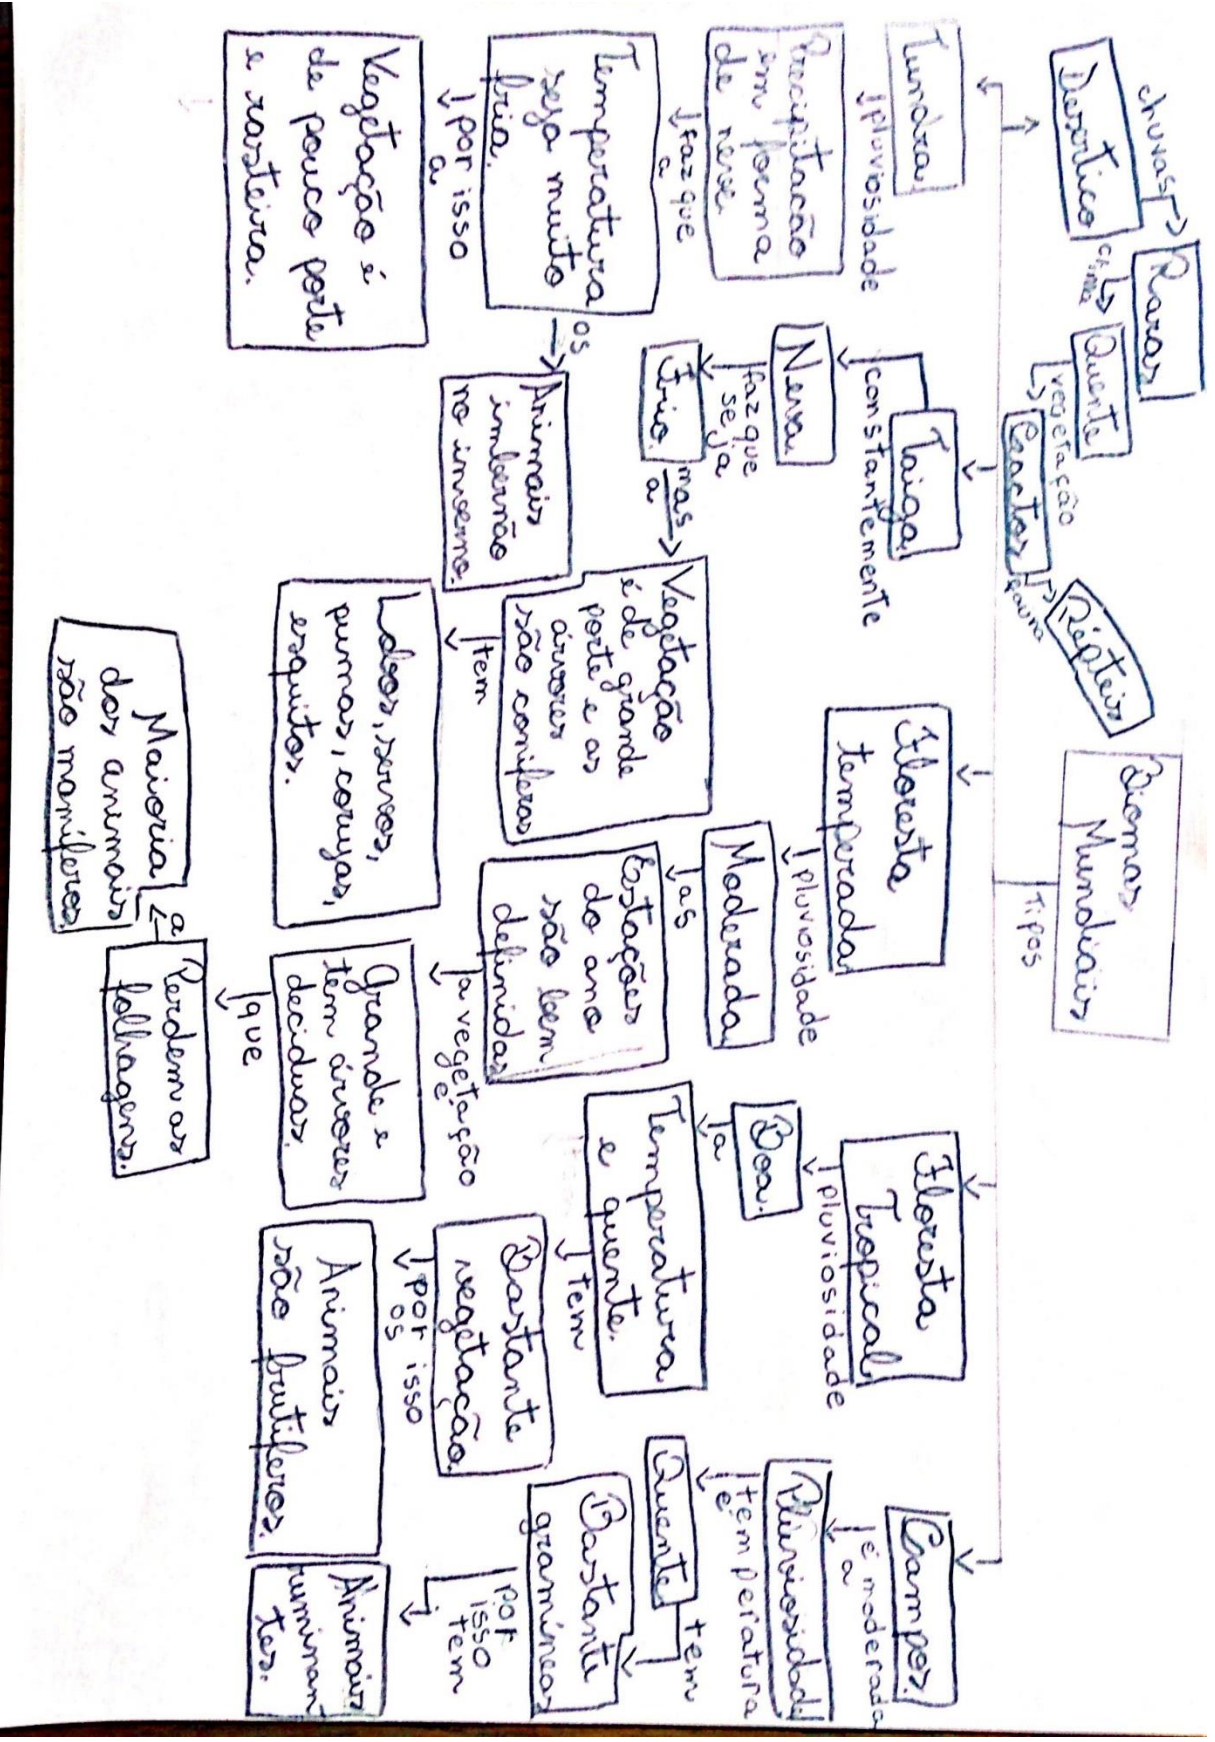 Biomas
Mundiais
Tipos
chuvas
Raras
Desertico
clima
Quente
vegetação
Cactos
fauna
Répteis
Tundra
pluviosidade
Precipitação
em forma
de neve
faz que
a
Temperatura
seja muito
fria.
os
Animais
imbernão
no inverno.
por isso
a
Vegetação é
de pouco porte
e rasteira.
Taiga
constantemente
Neva
faz que
seja
Frio
mas
a
Vegetação
é de grande
porte e as
árvores
são coniferas
tem
Lobos, servos,
pumas, corujas,
esquitos.
Floresta
temperada
pluviosidade
Moderada
as
Estações
do ano
são bem
definidas
a vegetação
é
Grande e
tem árvores
deciduas.
que
Perdem as
folhagens.
a
Maioria
dos animais
são mamíferos
Floresta
Tropical
pluviosidade
Boa.
a
Temperatura
e quente.
tem
Bastante
vegetação.
por isso
os
Animais
são frutiferos.
Campos.
é moderada
a
Pluviosidade
temperatura
é
Quente
tem
Bastante
gramíneas
por
isso
tem
Animais
ruminan
tes.